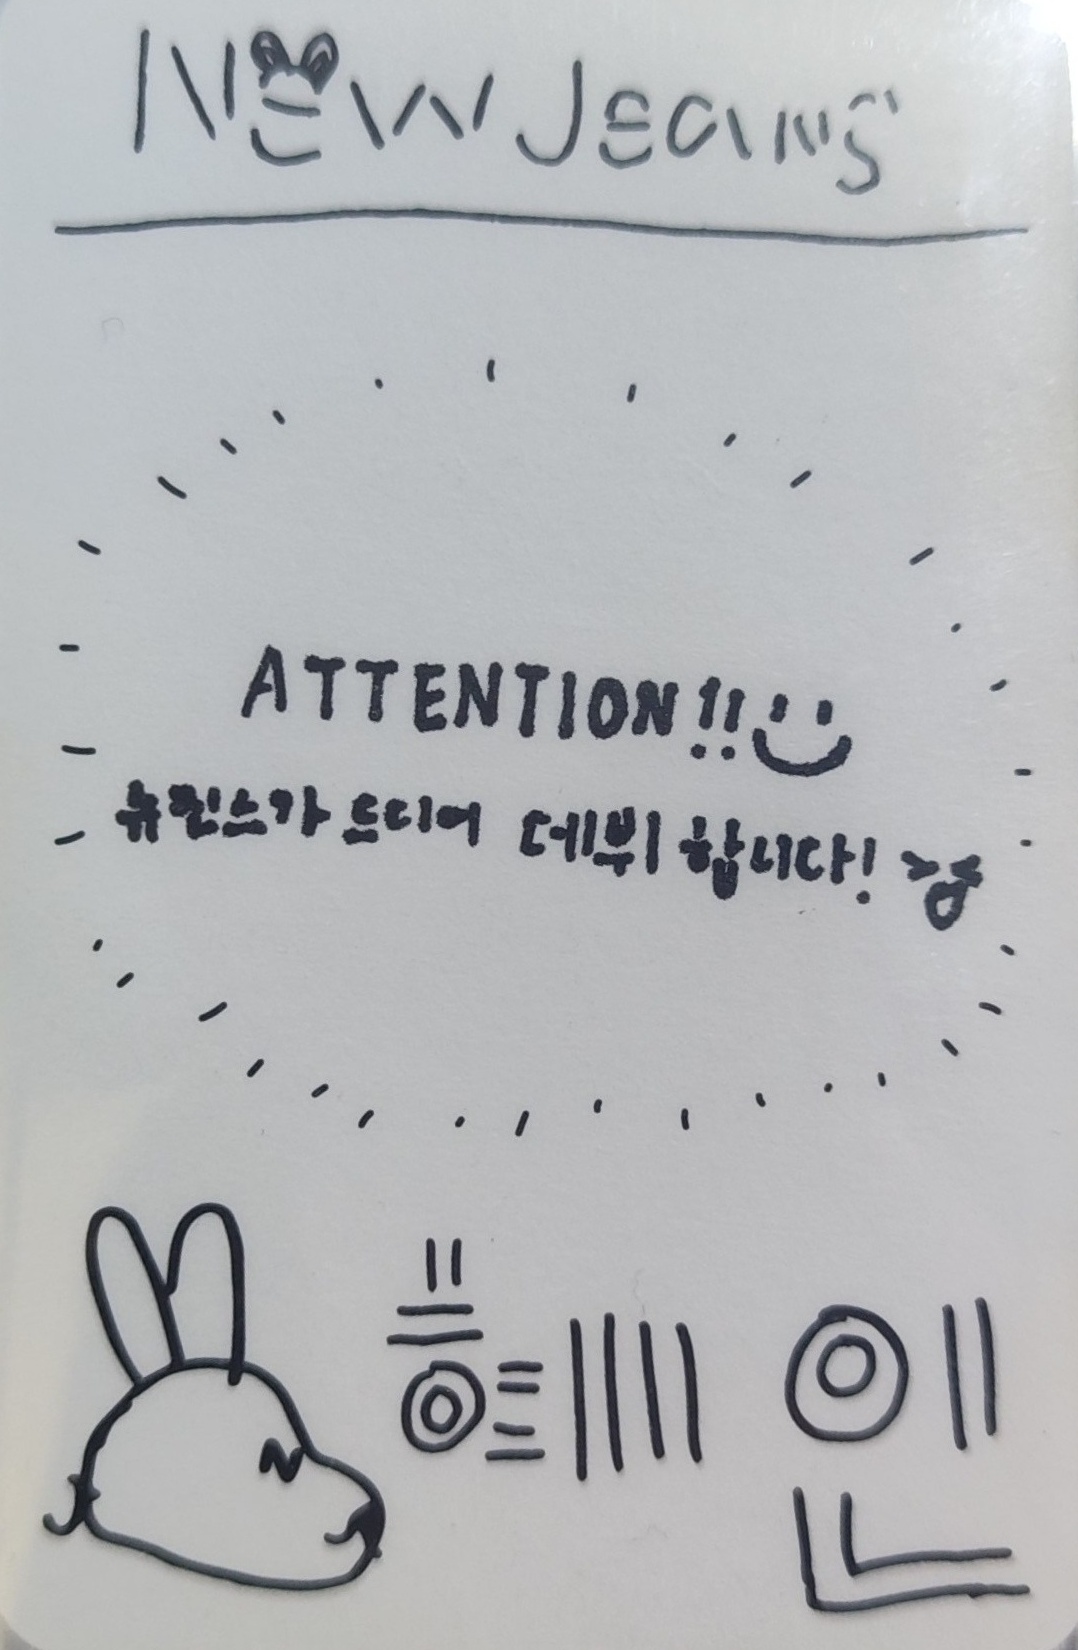 NEW JEANS
ATTENTION!!
뉴진스가 드디어 데뷔 합니다!
혜인